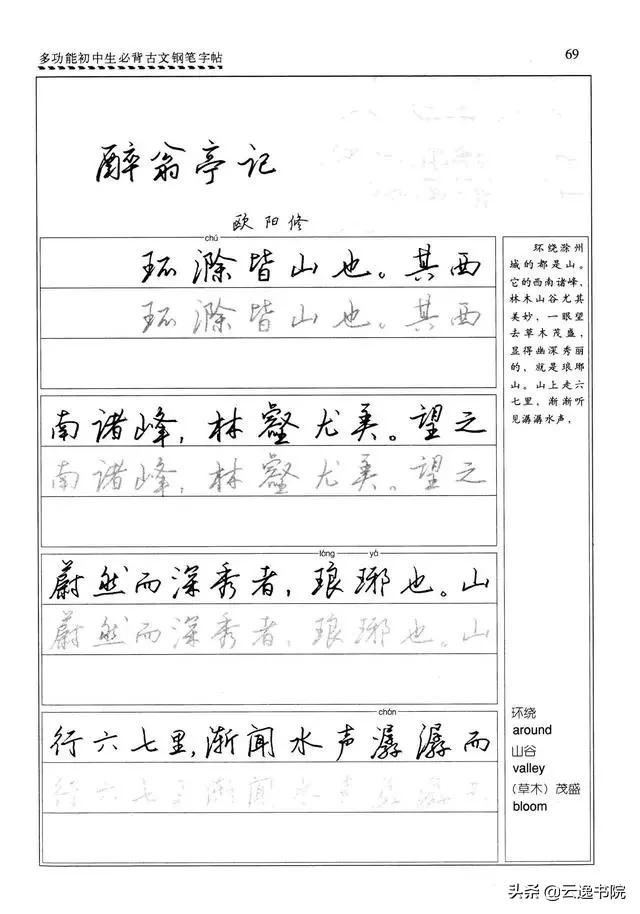 多功能初中生必背古文钢笔字帖
69
醉翁亭记
欧阳修
chú
环滁皆山也。其西
环滁皆山也。其西
南诸峰，林壑尤美。望之
南诸峰，林壑尤美。望之
láng yá
蔚然而深秀者，琅琊也。山
蔚然而深秀者，琅琊也。山
chán
行六七里，渐闻水声潺潺而
行六七里，渐闻水声潺潺而
环绕滁州
城的都是山。
它的西南诸峰，
林木山谷尤其
美妙，一眼望
去草木茂盛，
显得幽深秀丽
的，就是琅琊
山。山上走六
七里，渐渐听
见潺潺水声，
环绕
around
山谷
valley
（草木）茂盛
bloom
头条@云逸书院